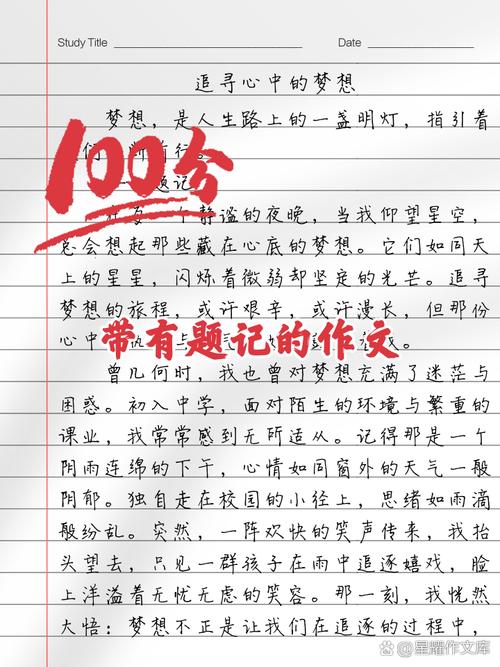 Study Title
Date
追寻心中的梦想
梦想，是人生路上的一盏明灯，指引着
前行。
题记
100分
一个静谧的夜晚，当我仰望星空，
总会想起那些藏在心底的梦想。它们如同天
上的星星，闪烁着微弱却坚定的光芒。追寻
梦想的旅程，或许艰辛，或许漫长，但那份
心中
带有题记的作文
曾几何时，我也曾对梦想充满了迷茫与
困惑。初入中学，面对陌生的环境与繁重的
课业，我常常感到无所适从。记得那是一个
阴雨连绵的下午，心情如同窗外的天气一般
阴郁。独自走在校园的小径上，思绪如雨滴
般纷乱。突然，一阵欢快的笑声传来，我抬
头望去，只见一群孩子在雨中追逐嬉戏，脸
上洋溢着无忧无虑的笑容。那一刻，我恍然
大悟：梦想不正是让我们在追逐的过程中，
星耀作文库